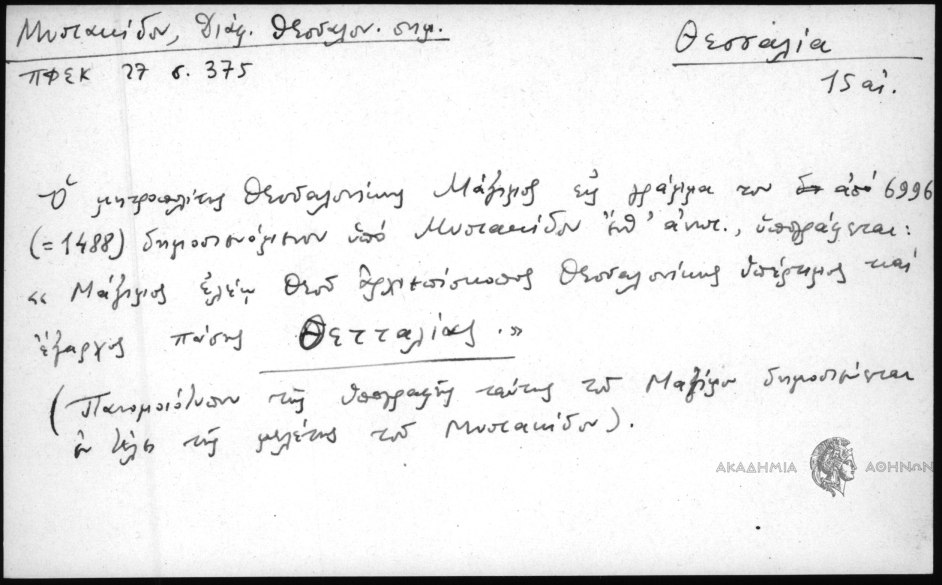 Μυστακίδου, Διάφ. Θεσσαλον. σημ.
Θεσσαλία
ΠΦΣΚ 27 σ. 375
15 αἰ.
Ὁ μητροπολίτης Θεσσαλονίκης Μάξιμος εἰς γράμμα του ἀπό 6996
(=1488) δημοσιευόμενον ὑπό Μυστακίδου ἔνθ' ἀνωτ., ὑπογράφεται:
«Μάξιμος ἐλέῳ Θεοῦ ἀρχιεπίσκοπος Θεσσαλονίκης ὑπέρτιμος καί
ἔξαρχος πάσης Θετταλίας.»
(Πανομοιότυπον τῆς ὑπογραφῆς ταύτης τοῦ Μαξίμου δημοσιεύεται
ἐν τέλει τῆς μελέτης τοῦ Μυστακίδου).
ΑΚΑΔΗΜΙΑ ΑΘΗΝΩΝ